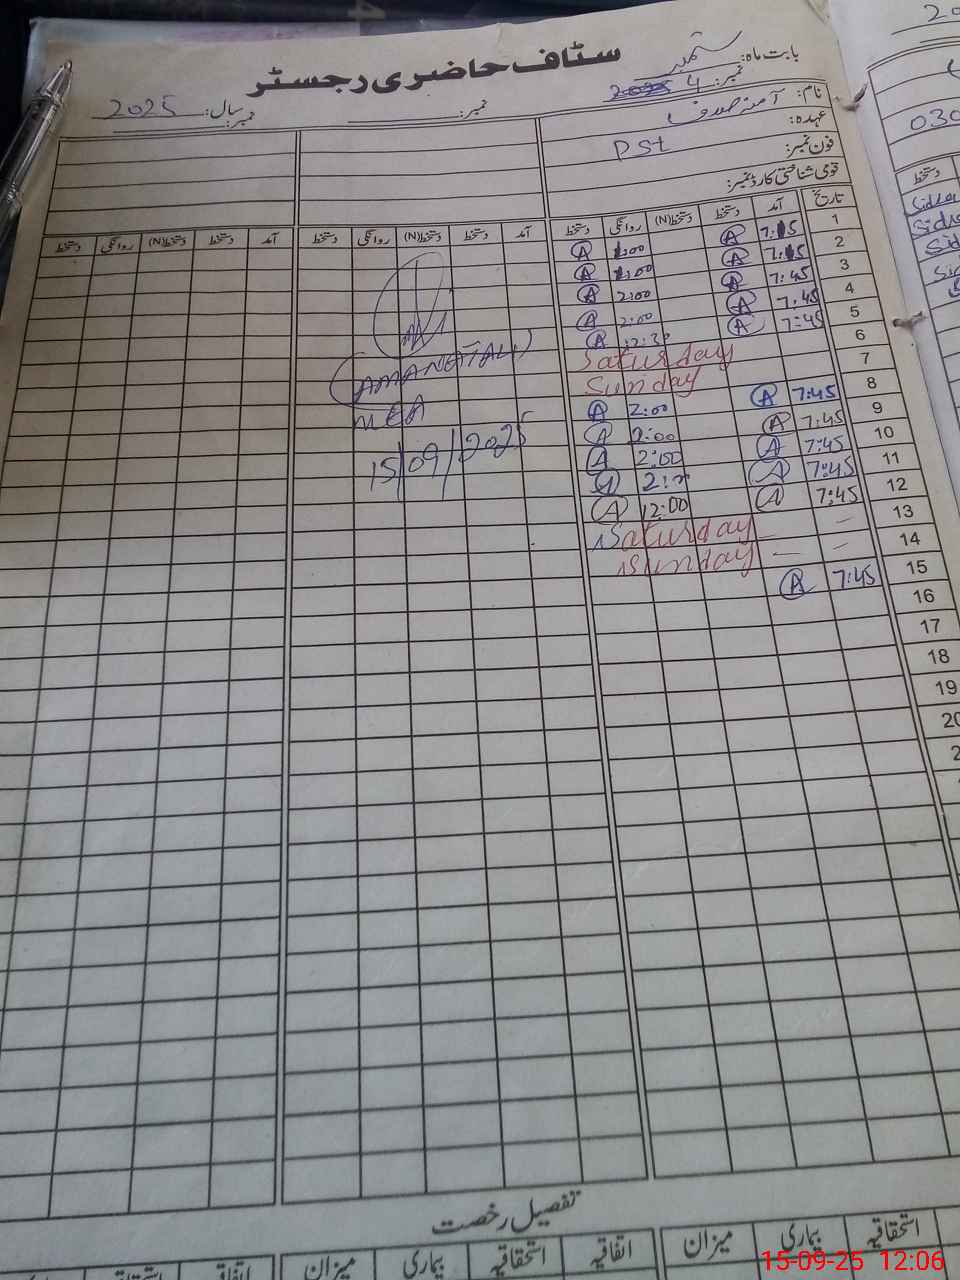 سٹاف حاضری رجسٹر
بابت ماہ: ستمبر
نمبر: 4
نمبر:
سال: 2025
نمبر:
نام: آمنہ صدف
عہدہ: PSt
فون نمبر:
قومی شناختی کارڈ نمبر:
تاریخ آمد دستخط دستخط(N) روانگی دستخط آمد دستخط دستخط(N) روانگی دستخط آمد دستخط دستخط(N) روانگی دستخط
1 7:15 A A
2 7:15 A A
3 7:45 A 2:00 A
4 7:45 A 2:00 A
5 7:45 A 12:30 A
6 Saturday
7 Sunday
8 7:45 A 2:00 A
9 7:45 A 2:00 A
10 7:45 A 2:00 A
11 7:45 A A
12 7:45 A 12:00 A
13 Saturday
14 Sunday
15 7:45 A
16
17
18
19
20
(AMANAT ALI)
MEA
15/09/2025
تفصیل رخصت
استحقاقیہ بیماری میزان اتفاقیہ استحقاقیہ بیماری میزان اتفاقیہ استحقاقیہ
2025
030
دستخط
Sidra
Sidra
15-09-25 12:06